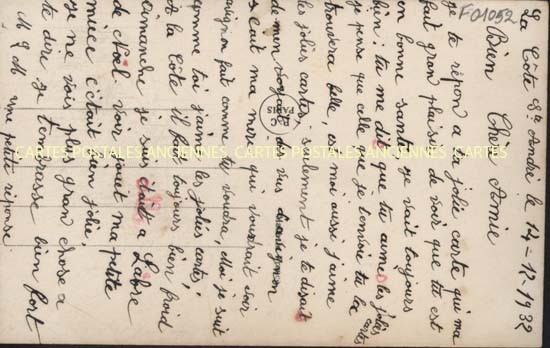 F01052
La Côte St André le 14-12-1932
Bien Chère Amie
je te répond a ta jolie carte qui ma
fait gran plaisir de voir que tu est
en bonne santé je vait toujours
bien. tu me dis que tu aime les jolies cartes
je pense que celle que je t'envoie tu la
trouvera belle, car moi aussi j'aime
les jolies cartes. seulement je te disait
de mon voyage
s'cait ma mer qui voudrait voir
avignon fait comme tu voudra, moi je suit
comme toi j'aime les jolies cartes,
a la Côte il fait toujours bien froid
dimanche je suis était a Labre
de Noël voir jouet ma petite
niece c'était bien jolie,
je ne vois plus gran chose a
te dire je t'embrasse bien fort
M G M une petite réponse
C P A
PARIS
CARTES POSTALES ANCIENNES. CARTES POSTALES ANCIENNES. CARTES POSTALES ANCIENNES